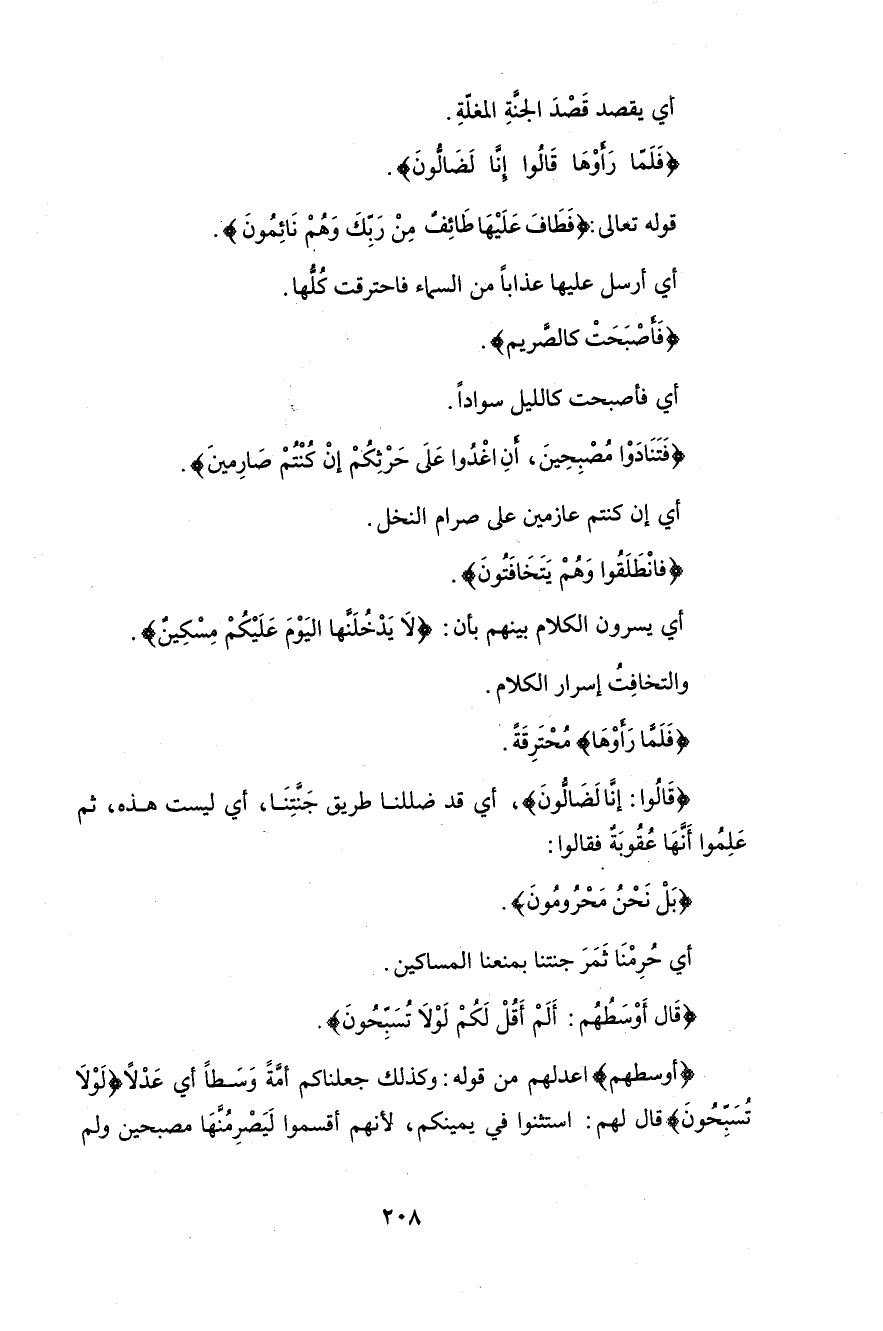 أي يقصد قَصْدَ الجنَّةِ المغلّةِ.
﴿فَلَمّا رَأَوْهَا قَالُوا إِنَّا لَضَالُّونَ﴾.
قوله تعالى: ﴿فَطَافَ عَلَيْهَا طَائِفٌ مِنْ رَبِّكَ وَهُمْ نَائِمُونَ﴾.
أي أرسل عليها عذاباً من السماء فاحترقت كُلُّها.
﴿فَأَصْبَحَتْ كالصَّريم﴾.
أي فأصبحت كالليل سواداً.
﴿فَتَنَادَوْا مُصْبِحِينَ، أَنِ اغْدُوا عَلَى حَرْثِكُمْ إنْ كُنْتُمْ صَارِمينَ﴾.
أي إن كنتم عازمين على صرام النخل.
﴿فانْطَلَقُوا وَهُمْ يَتَخَافَتُونَ﴾.
أي يسرون الكلام بينهم بأن: ﴿لَا يَدْخُلَنَّها اليَوْمَ عَلَيْكُمْ مِسْكِينٌ﴾.
والتخافِتُ إسرار الكلام.
﴿فَلَمَّا رَأَوْهَا﴾ مُحْتَرِقَةً.
﴿قَالُوا: إنَّا لَضَالُّونَ﴾، أي قد ضللنا طريق جَنَّتِنَا، أي ليست هذه، ثم
عَلِمُوا أَنَّهَا عُقُوبَةٌ فقالوا:
﴿بَلْ نَحْنُ مَحْرُومُونَ﴾.
أي حُرِمْنَا ثَمَرَ جنتنا بمنعنا المساكين.
﴿قَال أَوْسَطُهُم: أَلَمْ أَقُلْ لَكُمْ لَوْلَا تُسَبِّحُونَ﴾.
﴿أوسطهم﴾ اعدلهم من قوله: وكذلك جعلناكم أمَّةً وَسَطاً أي عَدْلًا ﴿لَوْلَا
تُسَبِّحُونَ﴾ قال لهم: استثنوا في يمينكم، لأنهم أقسموا لَيَصْرِمُنَّهَا مصبحين ولم
٢٠٨